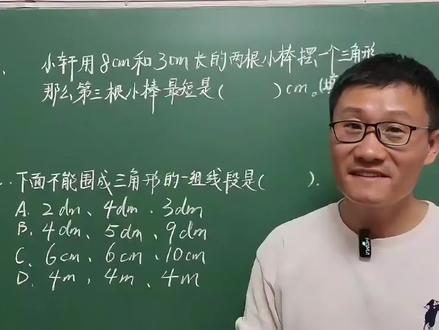 小轩用8cm和3cm长的两根小棒摆一个三角形
那么第三根小棒最短是(  )cm。(
下面不能围成三角形的一组线段是(  ).
A. 2dm、4dm、3dm
B. 4dm、5dm、9dm
C. 6cm、6cm、10cm
D. 4m、4m、4m